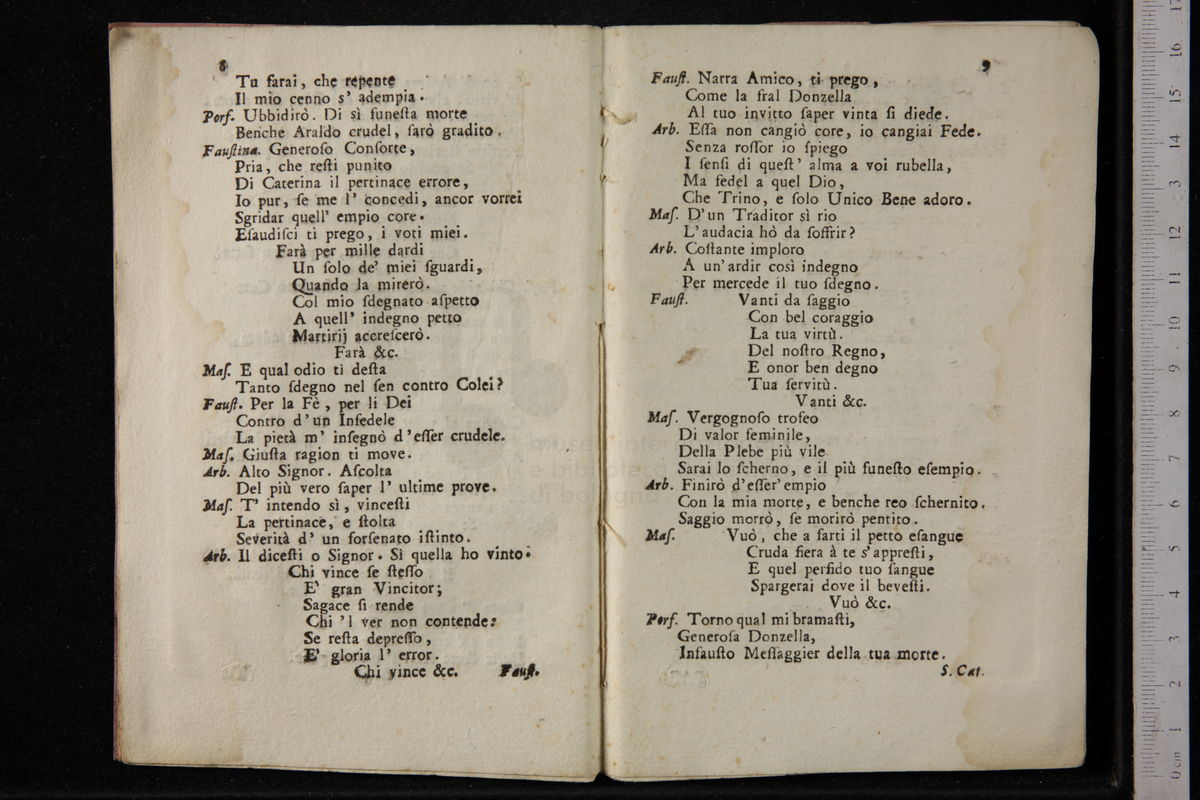 8
Tu farai, che repente
Il mio cenno s' adempia.
Porf. Ubbidirò. Di sì funeſta morte
Benche Araldo crudel, ſarò gradito.
Fauſtina. Generoſo Conſorte,
Pria, che reſti punito
Di Caterina il pertinace errore,
Io pur, ſe me l' concedi, ancor vorrei
Sgridar quell' empio core.
Eſaudiſci ti prego, i voti miei.
Farà per mille dardi
Un ſolo de' miei ſguardi,
Quando la mirerò.
Col mio ſdegnato aſpetto
A quell' indegno petto
Martirij accreſcerò.
Farà &c.
Maſ. E qual odio ti deſta
Tanto ſdegno nel ſen contro Colei?
Fauſt. Per la Fè, per li Dei
Contro d' un Infedele
La pietà m' inſegnò d'eſſer crudele.
Maſ. Giuſta ragion ti move.
Arb. Alto Signor. Aſcolta
Del più vero ſaper l' ultime prove.
Maſ. T' intendo sì, vinceſti
La pertinace, e ſtolta
Severità d' un forſenato iſtinto.
Arb. Il diceſti o Signor. Sì quella ho vinto.
Chi vince ſe ſteſſo
E' gran Vincitor;
Sagace ſi rende
Chi 'l ver non contende:
Se reſta depreſſo,
E' gloria l' error.
Chi vince &c.
Fauſt.
9
Fauſt. Narra Amico, ti prego,
Come la fral Donzella
Al tuo invitto ſaper vinta ſi diede.
Arb. Eſſa non cangiò core, io cangiai Fede.
Senza roſſor io ſpiego
I ſenſi di queſt' alma a voi rubella,
Ma fedel a quel Dio,
Che Trino, e ſolo Unico Bene adoro.
Maſ. D'un Traditor sì rio
L'audacia hò da ſoffrir?
Arb. Coſtante imploro
A un' ardir così indegno
Per mercede il tuo ſdegno.
Fauſt. Vanti da ſaggio
Con bel coraggio
La tua virtù.
Del noſtro Regno,
E onor ben degno
Tua ſervitù.
Vanti &c.
Maſ. Vergognoſo trofeo
Di valor feminile,
Della Plebe più vile
Sarai lo ſcherno, e il più funeſto eſempio.
Arb. Finirò d'eſſer' empio
Con la mia morte, e benche reo ſchernito.
Saggio morrò, ſe morirò pentito.
Maſ. Vuò, che a farti il petto eſangue
Cruda fiera à te s'appreſti,
E quel perfido tuo ſangue
Spargerai dove il beveſti.
Vuò &c.
Porf. Torno qual mi bramaſti,
Generoſa Donzella,
Infauſto Meſſaggier della tua morte.
S. Cat.